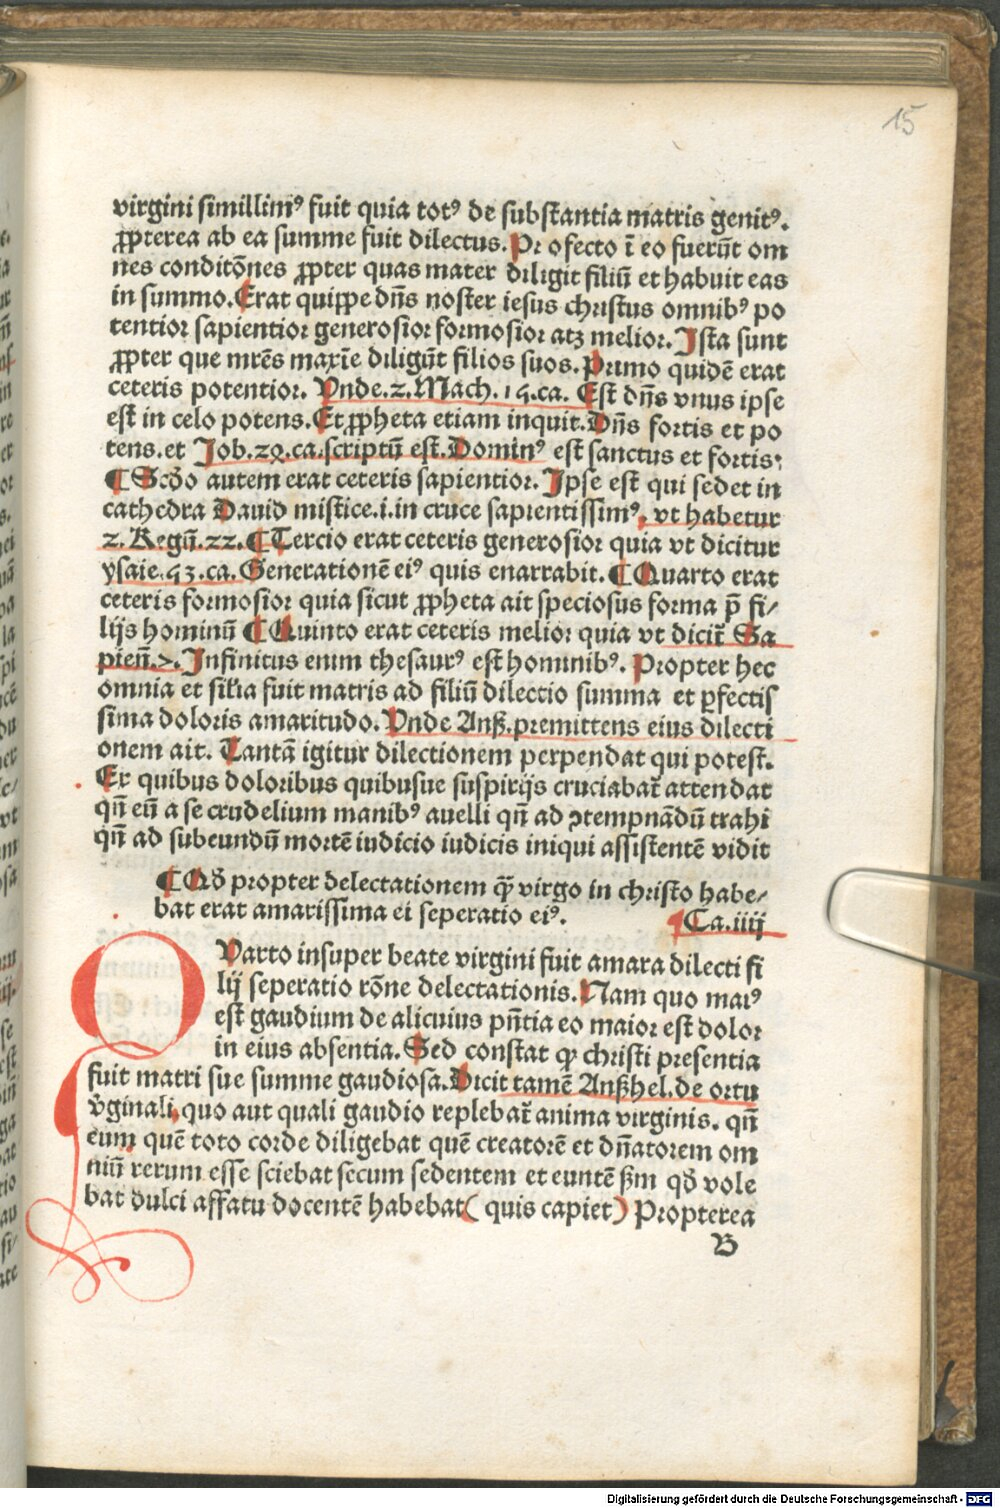 15
virgini simillimꝰ fuit quia totꝰ de substantia matris genitꝰ.
ꝓpterea ab ea summe fuit dilectus. Profecto ī eo fuerūt om
nes conditōnes ꝓpter quas mater diligit filiū et habuit eas
in summo. Erat quippe dn̄s noster iesus christus omnibꝰ po
tentior sapientior generosior formosior atqꝫ melior. Ista sunt
ꝓpter que mr̄es maxīe diligūt filios suos. Primo quidē erat
ceteris potentior. Vnde.2.Mach.15.ca. Est dn̄s vnus ipse
est in celo potens. Et ꝓpheta etiam inquit. Dn̄s fortis et po
tens. et Job.29.ca.scriptū est. Dominꝰ est sanctus et fortis.
¶ Scd̄o autem erat ceteris sapientior. Ipse est qui sedet in
cathedra Dauid mistice.i.in cruce sapientissimꝰ, vt habetur
2. Regū.22. ¶ Tercio erat ceteris generosior quia vt dicitur
ysaie.53.ca. Generationē eiꝰ quis enarrabit. ¶ Quarto erat
ceteris formosior quia sicut ꝓpheta ait speciosus forma p̄ fi/
lijs hominū ¶ Quinto erat ceteris melior quia vt dicit̄ Sa
pien̄.7. Infinitus enim thesaurꝰ est hominibꝰ. Propter hec
omnia et sil̄ia fuit matris ad filiū dilectio summa et ꝑfectis
sima doloris amaritudo. Vnde Anß. premittens eius dilecti
onem ait. Tantā igitur dilectionem perpendat qui potest.
Ex quibus doloribus quibusue suspirijs cruciabat̄ attendat
qn̄ eū a se crudelium manibꝰ auelli qn̄ ad ꝯtempnādū trahi
qn̄ ad subeundū mortē iudicio iudicis iniqui assistentē vidit
¶ Qd̄ propter delectationem qͣ̄ virgo in christo habe/
bat erat amarissima ei seperatio eiꝰ. ¶ Ca.iiij
QVarto insuper beate virgini fuit amara dilecti fi
lij seperatio rōne delectationis. Nam quo maiꝰ
est gaudium de alicuius pn̄tia eo maior est dolor
in eius absentia. Sed constat ꝙ christi presentia
fuit matri sue summe gaudiosa. Dicit tamē Anßhel. de ortu
v̄ginali, quo aut quali gaudio replebat̄ anima virginis. qn̄
eum quē toto corde diligebat quē creatorē et dn̄atorem om
niū rerum esse sciebat secum sedentem et euntē ßm qd̄ vole
bat dulci affatu docentē habebat ( quis capiet ) Propterea
B
Digitalisierung gefördert durch die Deutsche Forschungsgemeinschaft - DFG